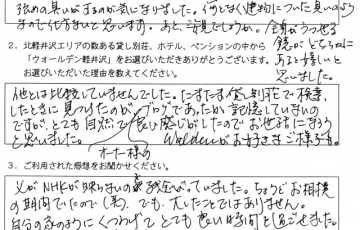 強めの臭いがするのが気になりました。何となく建物についた臭いのよう
なので仕方ないと思います。あと、姿見でしょうか。全身がうつせる
鏡がどこかに
あると嬉しいと
思いました。
2. 北軽井沢エリアの数ある貸し別荘、ホテル、ペンションの中から
「ウォールデン軽井沢」をお選びいただきありがとうございます。
お選びいただいた理由を教えてください。
他とは比較していませんでした。たまたま貸し別荘で検索
したときに見つけたのがブログであったか記憶していないの
ですが、とても自然で良い感じがしたのでお世話になろう
と思いました。Waldenがお好きなご様子も。
オーナー様の
3. ご利用された感想をお聞かせください。
父がNHKが映らないのを残念がっていました。ちょうどお相撲
の期間でしたので(笑)。でも、大したことではありません。
自分の家のようにくつろげて とても良い時間を過ごせました。